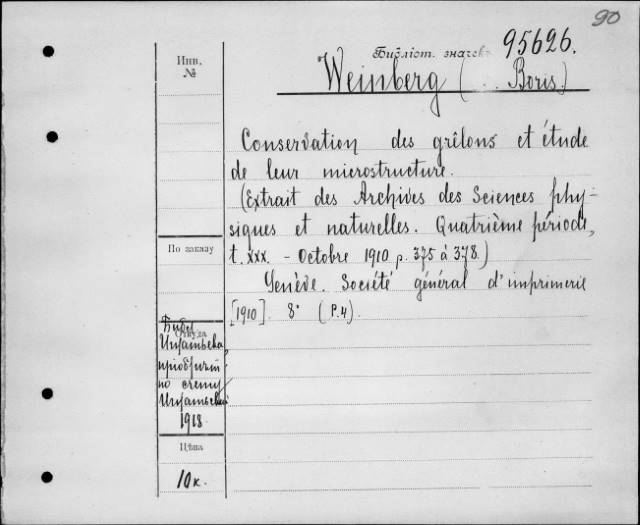 90
Инв.
№
Библіот. значекъ 95626.
Weinberg (... Boris)
Conservation des grêlons et étude
de leur microstructure.
(Extrait des Archives des Sciences phy-
siques et naturelles. Quatrième période,
По заказу
t. XXX. - Octobre 1910 p. 375 à 378.)
Genève. Société général d'imprimerie
[1910]. 8° (P.4).
Библ.
Откуда
Игнатьева,
пріобрит
по счету
Игнатьевой
1918
Цѣна
10 к.